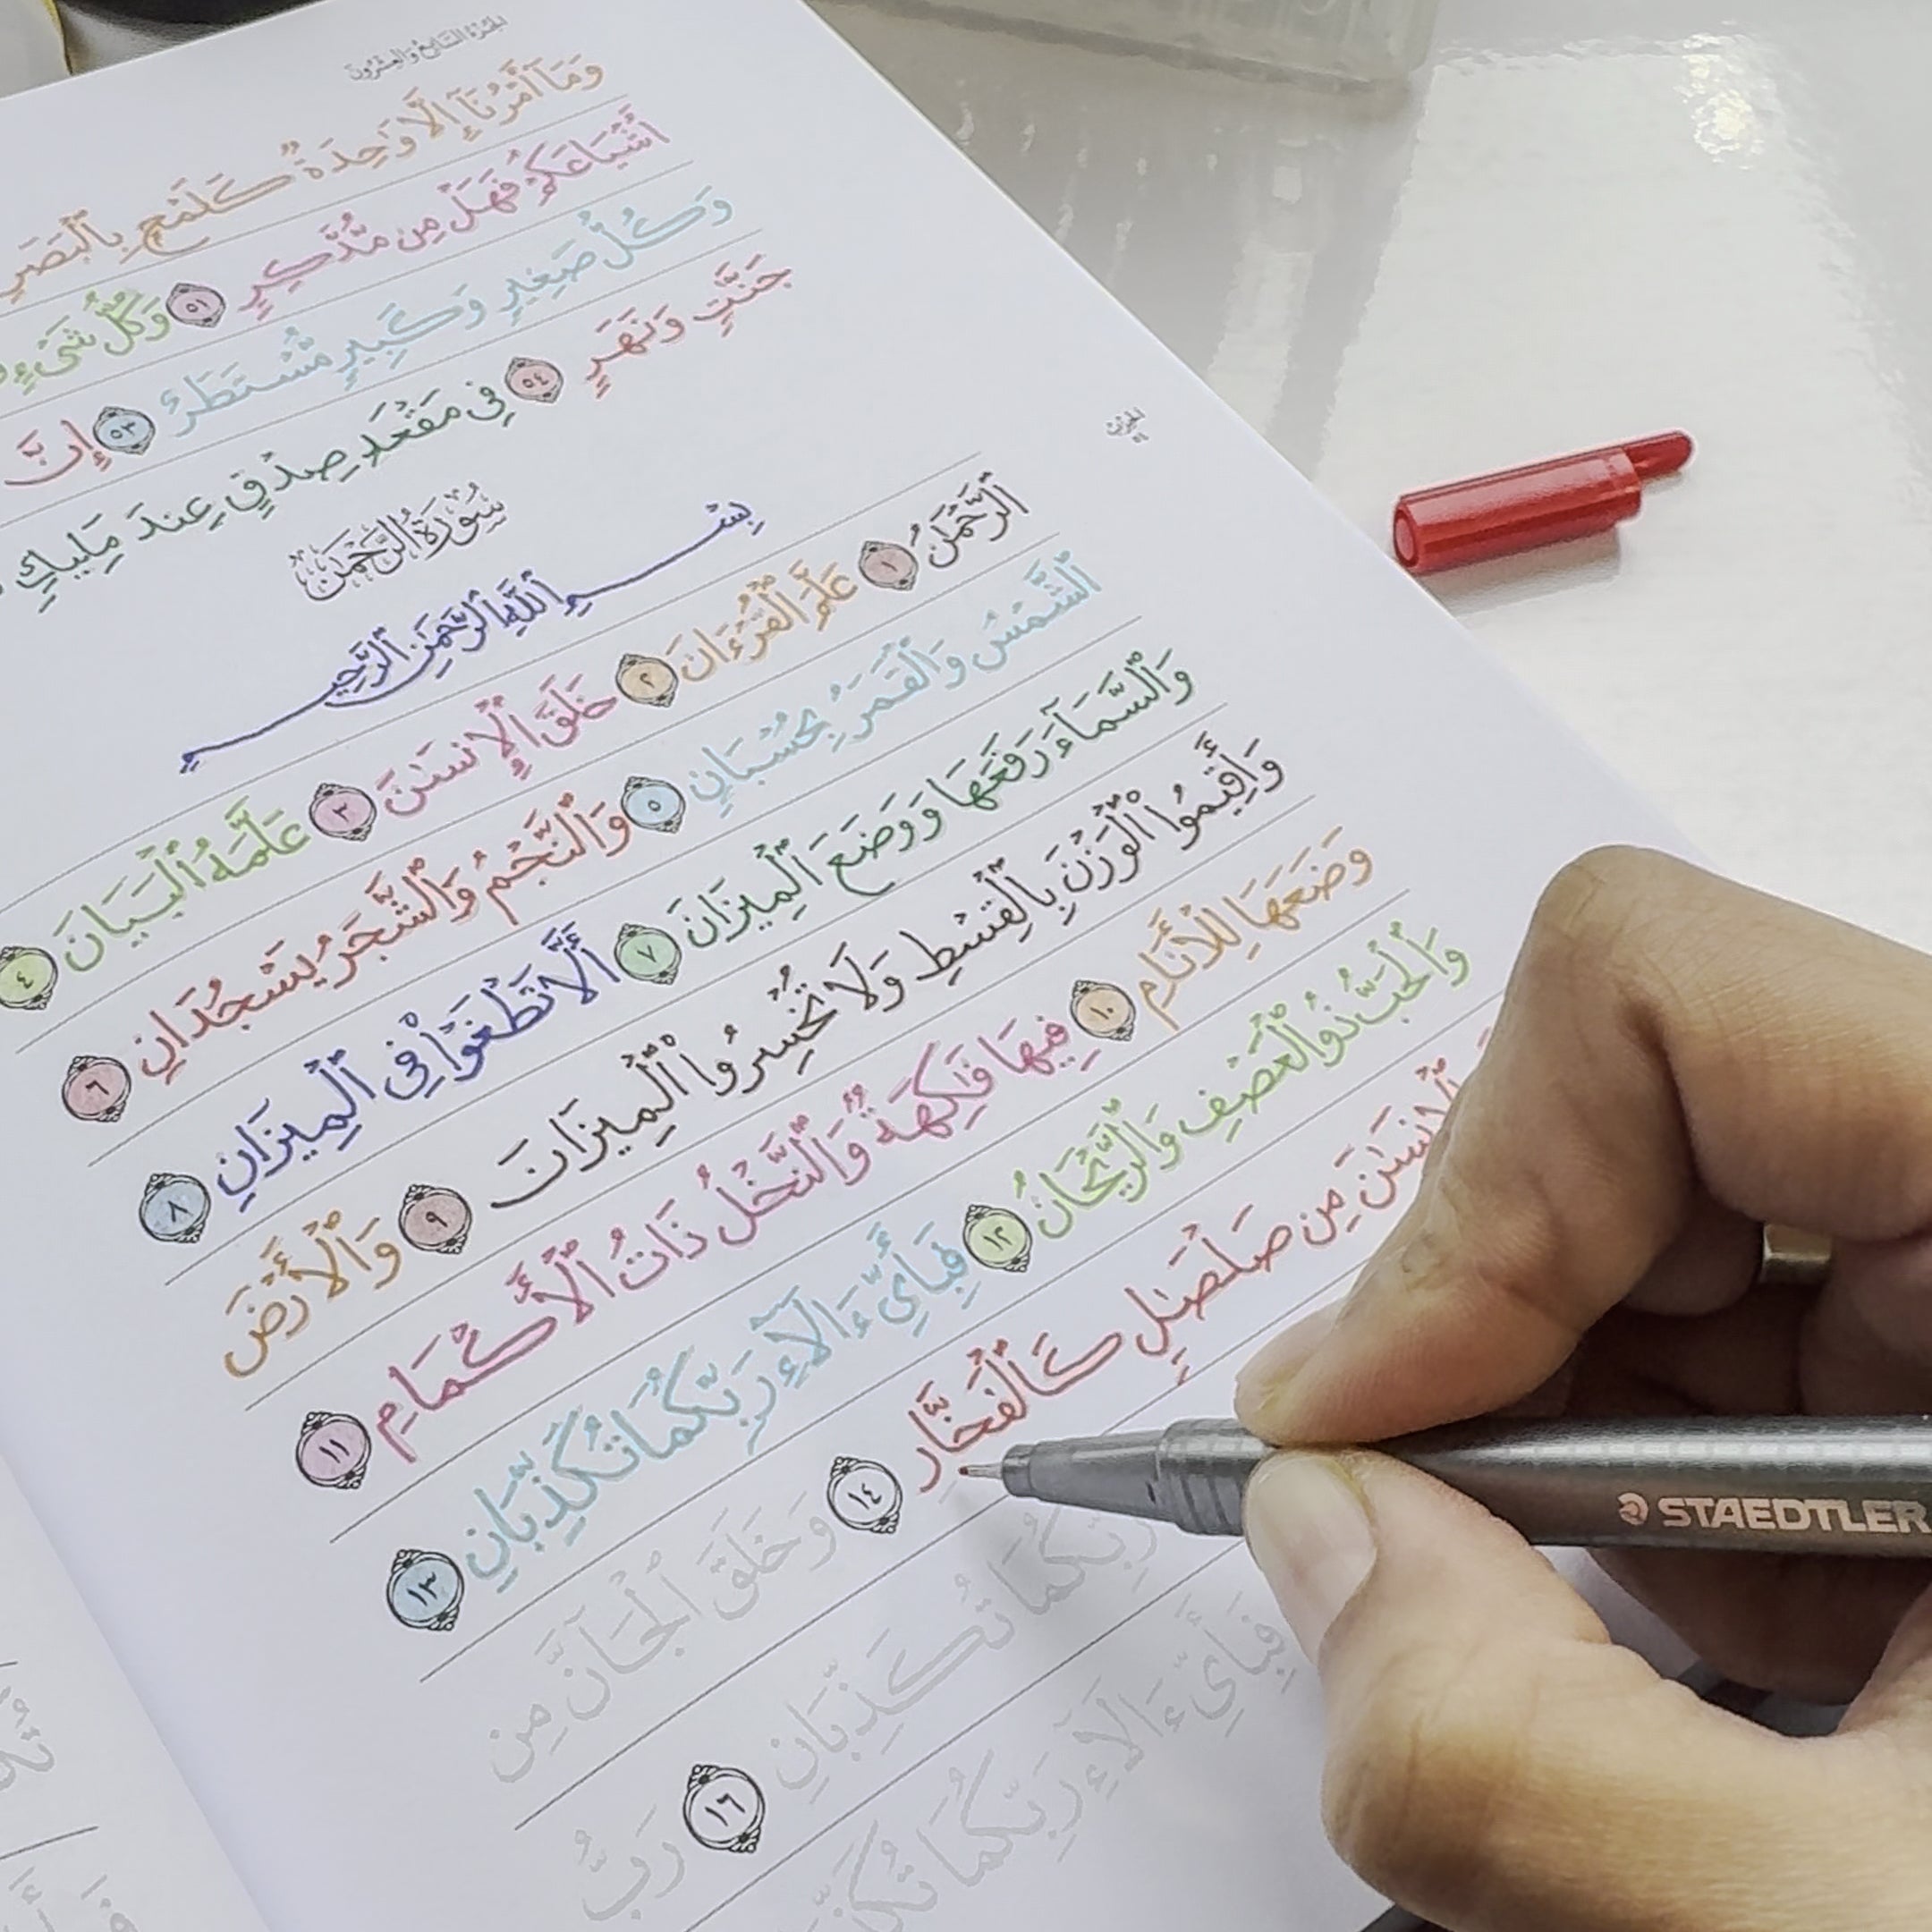 الجُزْءُ السَّابِعُ وَالعِشْرُونَ
وَمَآ أَمْرُنَآ إِلَّا وَٰحِدَةٌ كَلَمْحٍۭ بِٱلْبَصَرِ
أَشْيَاعَكُمْ فَهَلْ مِن مُّدَّكِرٍ ٥١ وَكُلُّ شَىْءٍ
وَكُلُّ صَغِيرٍ وَكَبِيرٍ مُّسْتَطَرٌ ٥٣ إِنَّ
جَنَّٰتٍ وَنَهَرٍ ٥٤ فِى مَقْعَدِ صِدْقٍ عِندَ مَلِيكٍ
سُورَةُ الرَّحْمَٰن
بِسْمِ ٱللَّهِ ٱلرَّحْمَٰنِ ٱلرَّحِيمِ
ٱلرَّحْمَٰنُ ١ عَلَّمَ ٱلْقُرْءَانَ ٢ خَلَقَ ٱلْإِنسَٰنَ ٣ عَلَّمَهُ ٱلْبَيَانَ ٤
ٱلشَّمْسُ وَٱلْقَمَرُ بِحُسْبَانٍ ٥ وَٱلنَّجْمُ وَٱلشَّجَرُ يَسْجُدَانِ ٦
وَٱلسَّمَآءَ رَفَعَهَا وَوَضَعَ ٱلْمِيزَانَ ٧ أَلَّا تَطْغَوْا۟ فِى ٱلْمِيزَانِ ٨
وَأَقِيمُوا۟ ٱلْوَزْنَ بِٱلْقِسْطِ وَلَا تُخْسِرُوا۟ ٱلْمِيزَانَ ٩ وَٱلْأَرْضَ
وَضَعَهَا لِلْأَنَامِ ١٠ فِيهَا فَٰكِهَةٌ وَٱلنَّخْلُ ذَاتُ ٱلْأَكْمَامِ ١١
وَٱلْحَبُّ ذُو ٱلْعَصْفِ وَٱلرَّيْحَانُ ١٢ فَبِأَىِّ ءَالَآءِ رَبِّكُمَا تُكَذِّبَانِ ١٣
ٱلْإِنسَٰنَ مِن صَلْصَٰلٍ كَٱلْفَخَّارِ ١٤ وَخَلَقَ ٱلْجَآنَّ مِن
رَبِّكُمَا تُكَذِّبَانِ ١٦ رَبُّ
فَبِأَىِّ ءَالَآءِ رَبِّكُمَا تُكَذِّبَانِ
STAEDTLER